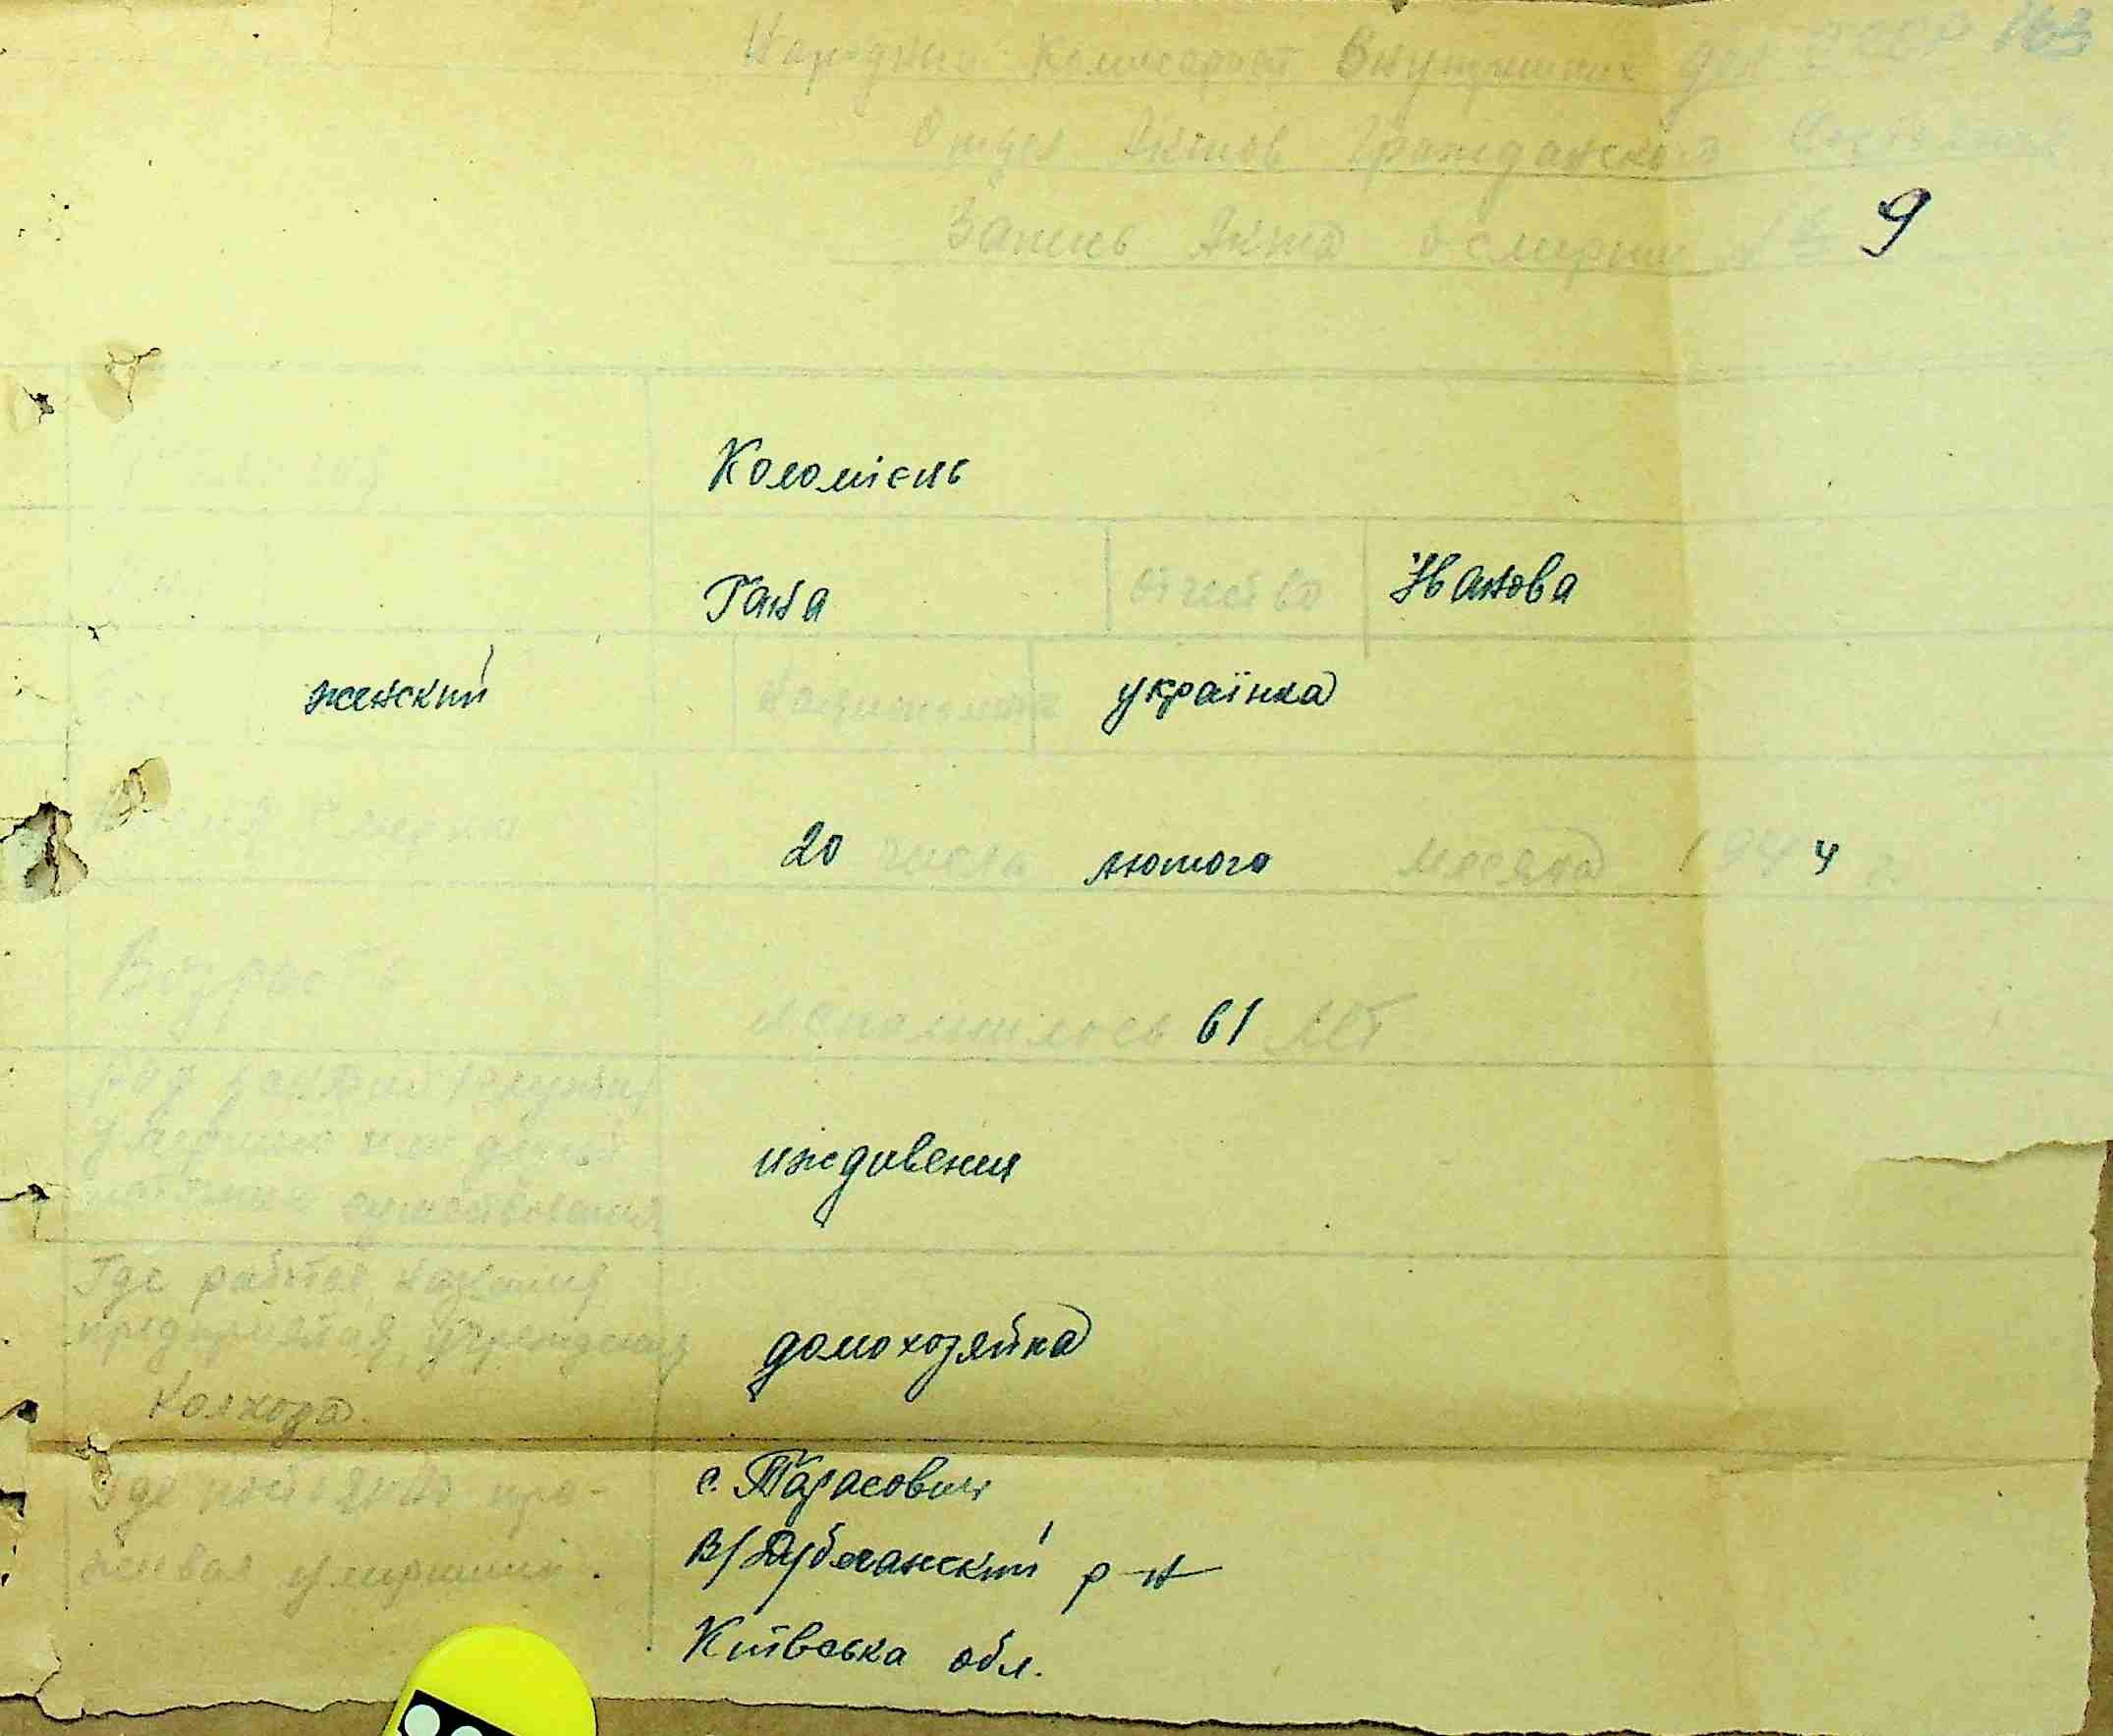 Народный Комиссариат Внутренних Дел СССР 163
Отдел Актов Гражданского Состояния
Запись Акта о смерти № 9
Коломієць
Гана отчество Iванова
женский национальность українка
Время смерти 20 числа лютого месяца 1944 г.
Возраст исполнилось 61 лет
Род занятий
умершего или
источник существования иждивения
Где работал, название
предприятия, учреждения
Колхоза. домохозяйка
Где постоянно про- с. Тарасовичі
живал умерший. В/Дубечанский р-н
Київська обл.